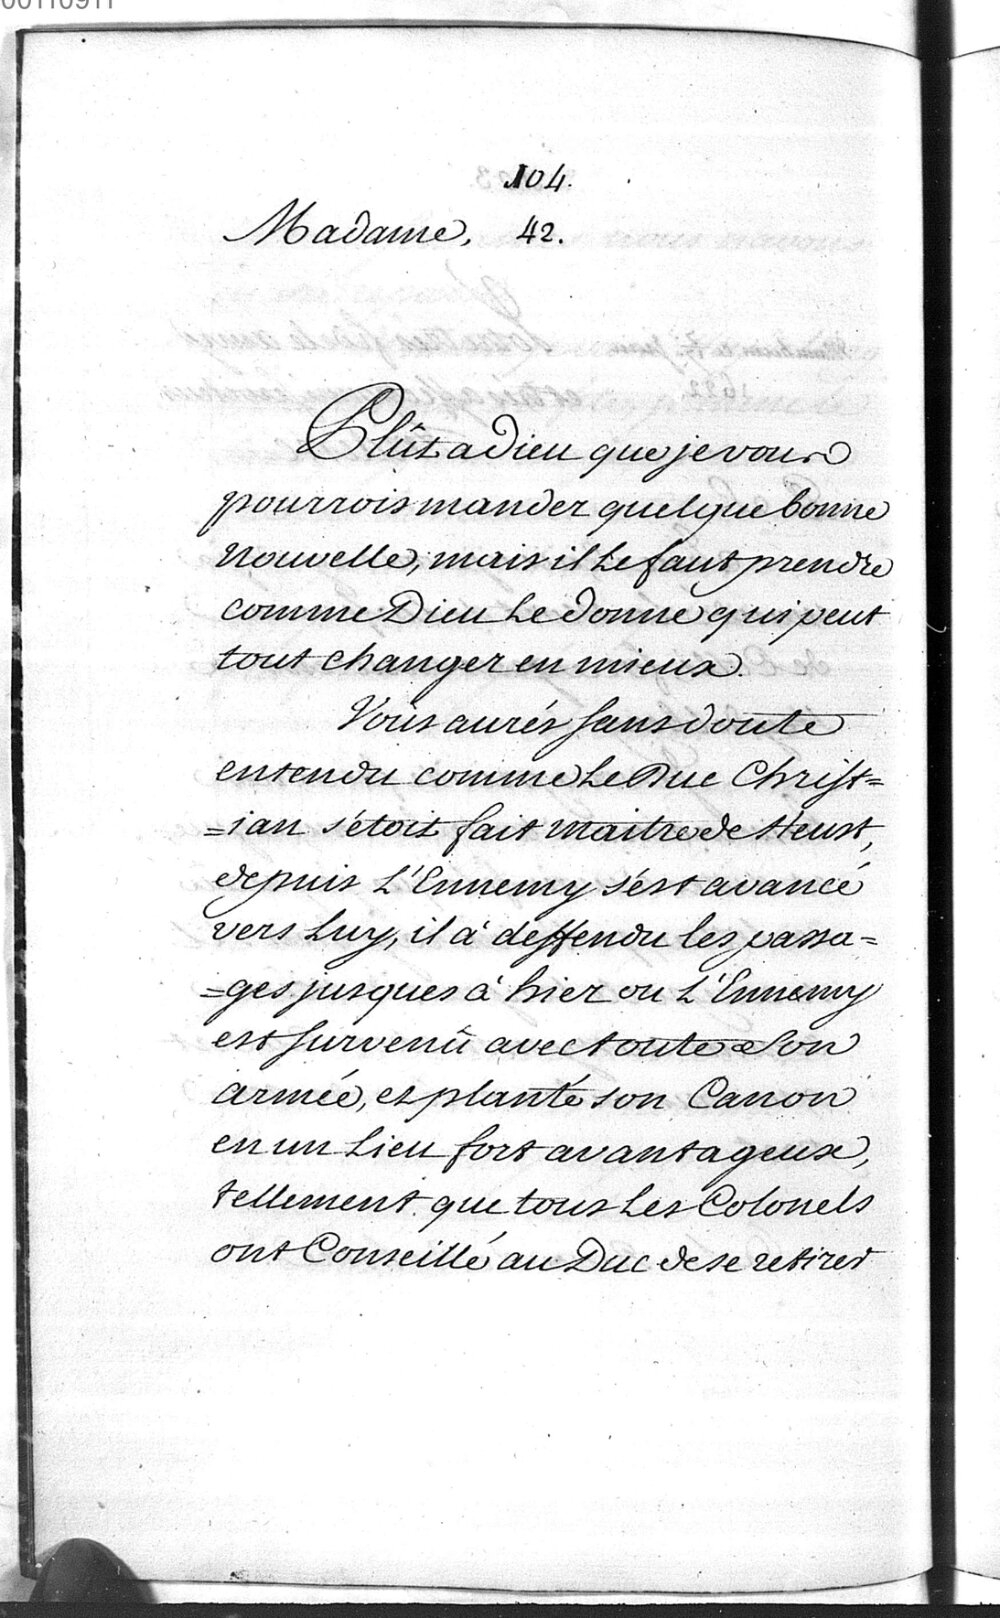 00110911
104.
Madame, 42.
Plût a Dieu que je vous
pourrois mander quelque bonne
nouvelle, mais il Le faut prendre
comme Dieu Le donne qui peut
tout changer en mieux.
Vous aurés sans doute
entendu comme Le Duc Christ=
=ian s'étoit fait maitre de Heust,
depuis L'Ennemy s'est avancé
vers Luy, il à deffendu les passa=
=ges jusques à hier ou L'Ennemy
est survenû avec toute Son
armée, et planté son Canon
en un Lieu fort avantageux,
tellement que tous Les Colonels
ont Conseillé au Duc de se retirer